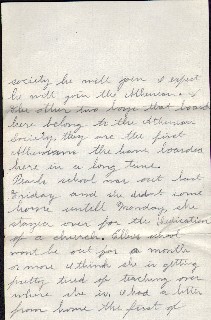 society he will join I expect
he will join the Athenian.
The other two boys that board
here belong to the Athenian
Society they are the first
Athenians the have boarded
here in a long time.
Pearls school was out last
Friday and she didnt come
home untill Monday she
stayed over for the dedication
of a church. school
wont be out for a month
or more I think she is getting
pretty tired of teaching over
where she is. I had a letter
from home the first of